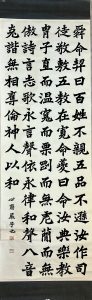 舜命契曰百姓不親五品不遜汝作司
徒敬敷五教在寬命夔曰命汝典樂教
胄子直而溫寬而栗剛而無虐簡而無
傲詩言志歌永言聲依永律和聲八音
克諧無相奪倫神人以和